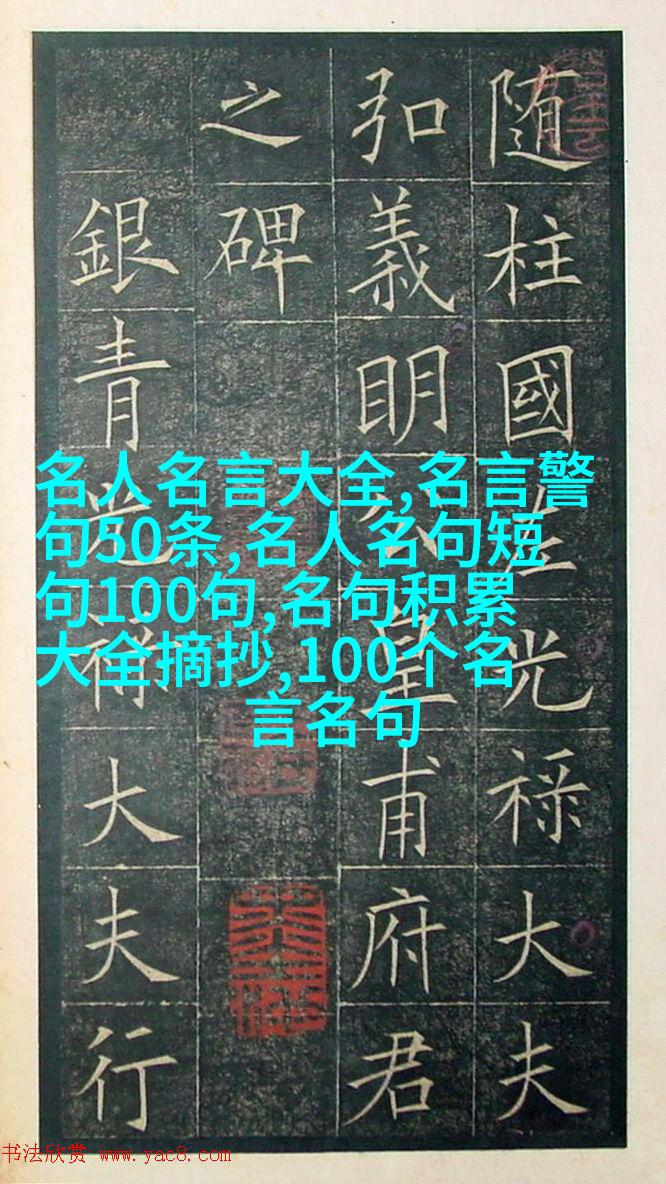 随柱國左光祿大夫
弘義眀公皇甫府君
之碑
銀青光大夫行
名人名言大全,名言警
句50条,名人名句短
句100句,名句积累
大全摘抄,100个名
言名句
书法欣赏 www.yac8.com